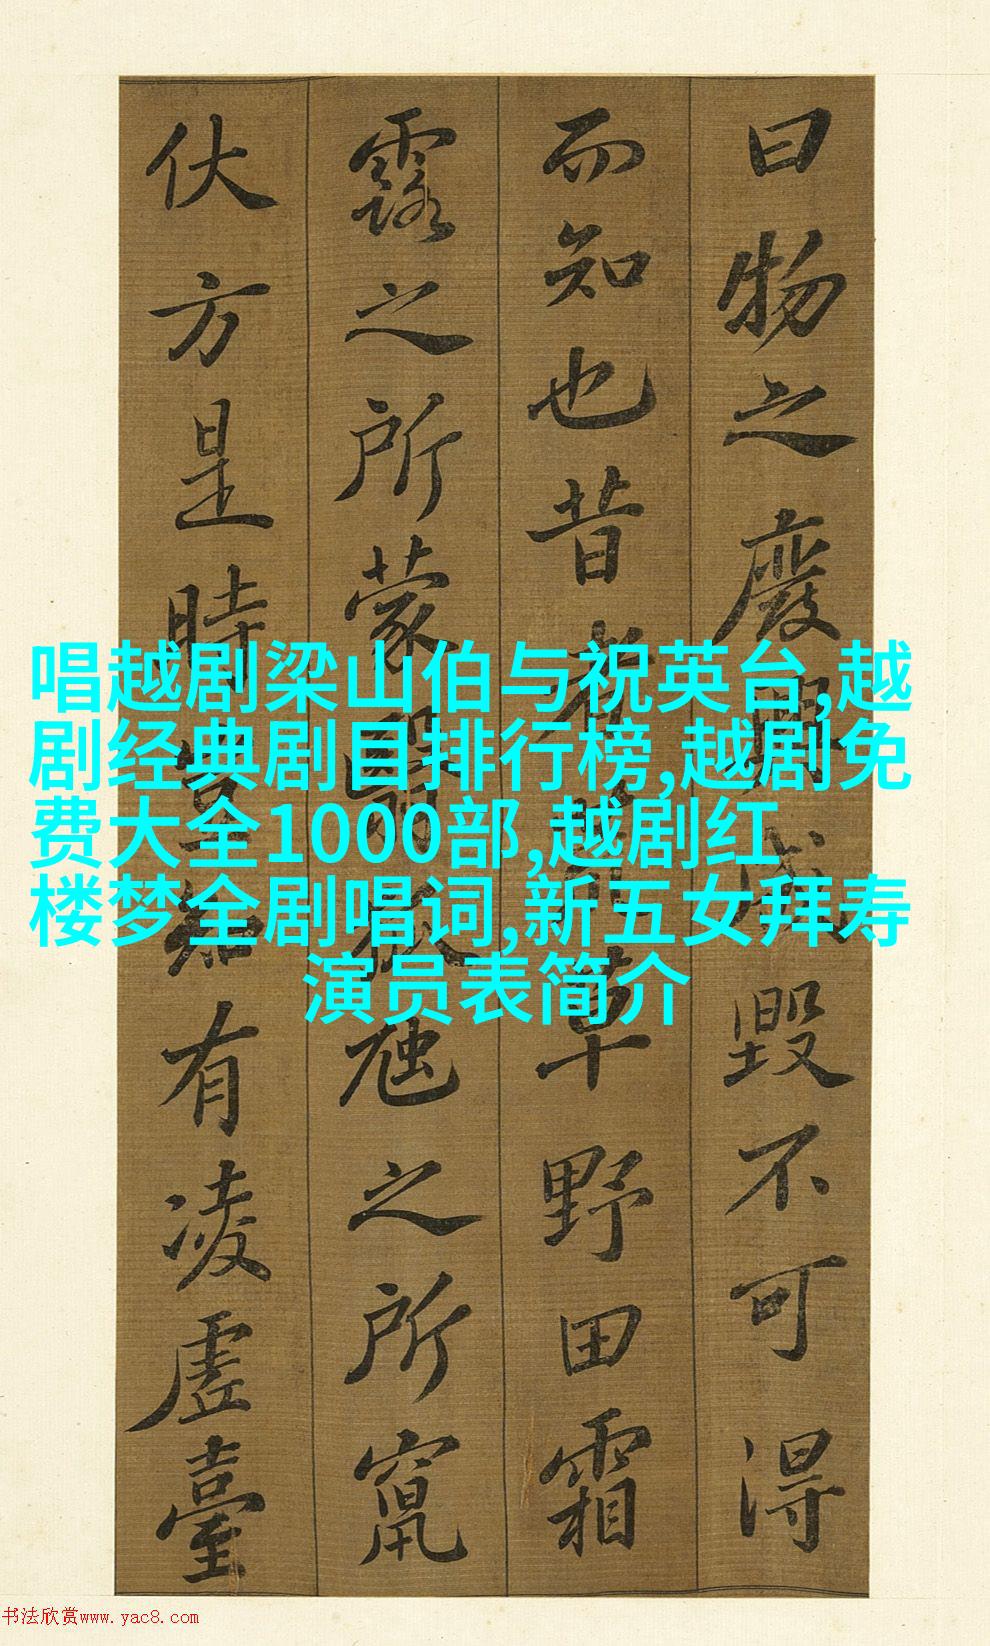 曰物之廢興成毀不可得
而知也昔者荒草野田霜
露之所蒙翳狐虺之所竄
伏方是時豈知有凌虛臺
唱越剧梁山伯与祝英台,越
剧经典剧目排行榜,越剧免
费大全1000部,越剧红
楼梦全剧唱词,新五女拜寿
演员表简介
书法欣赏www.yac8.com